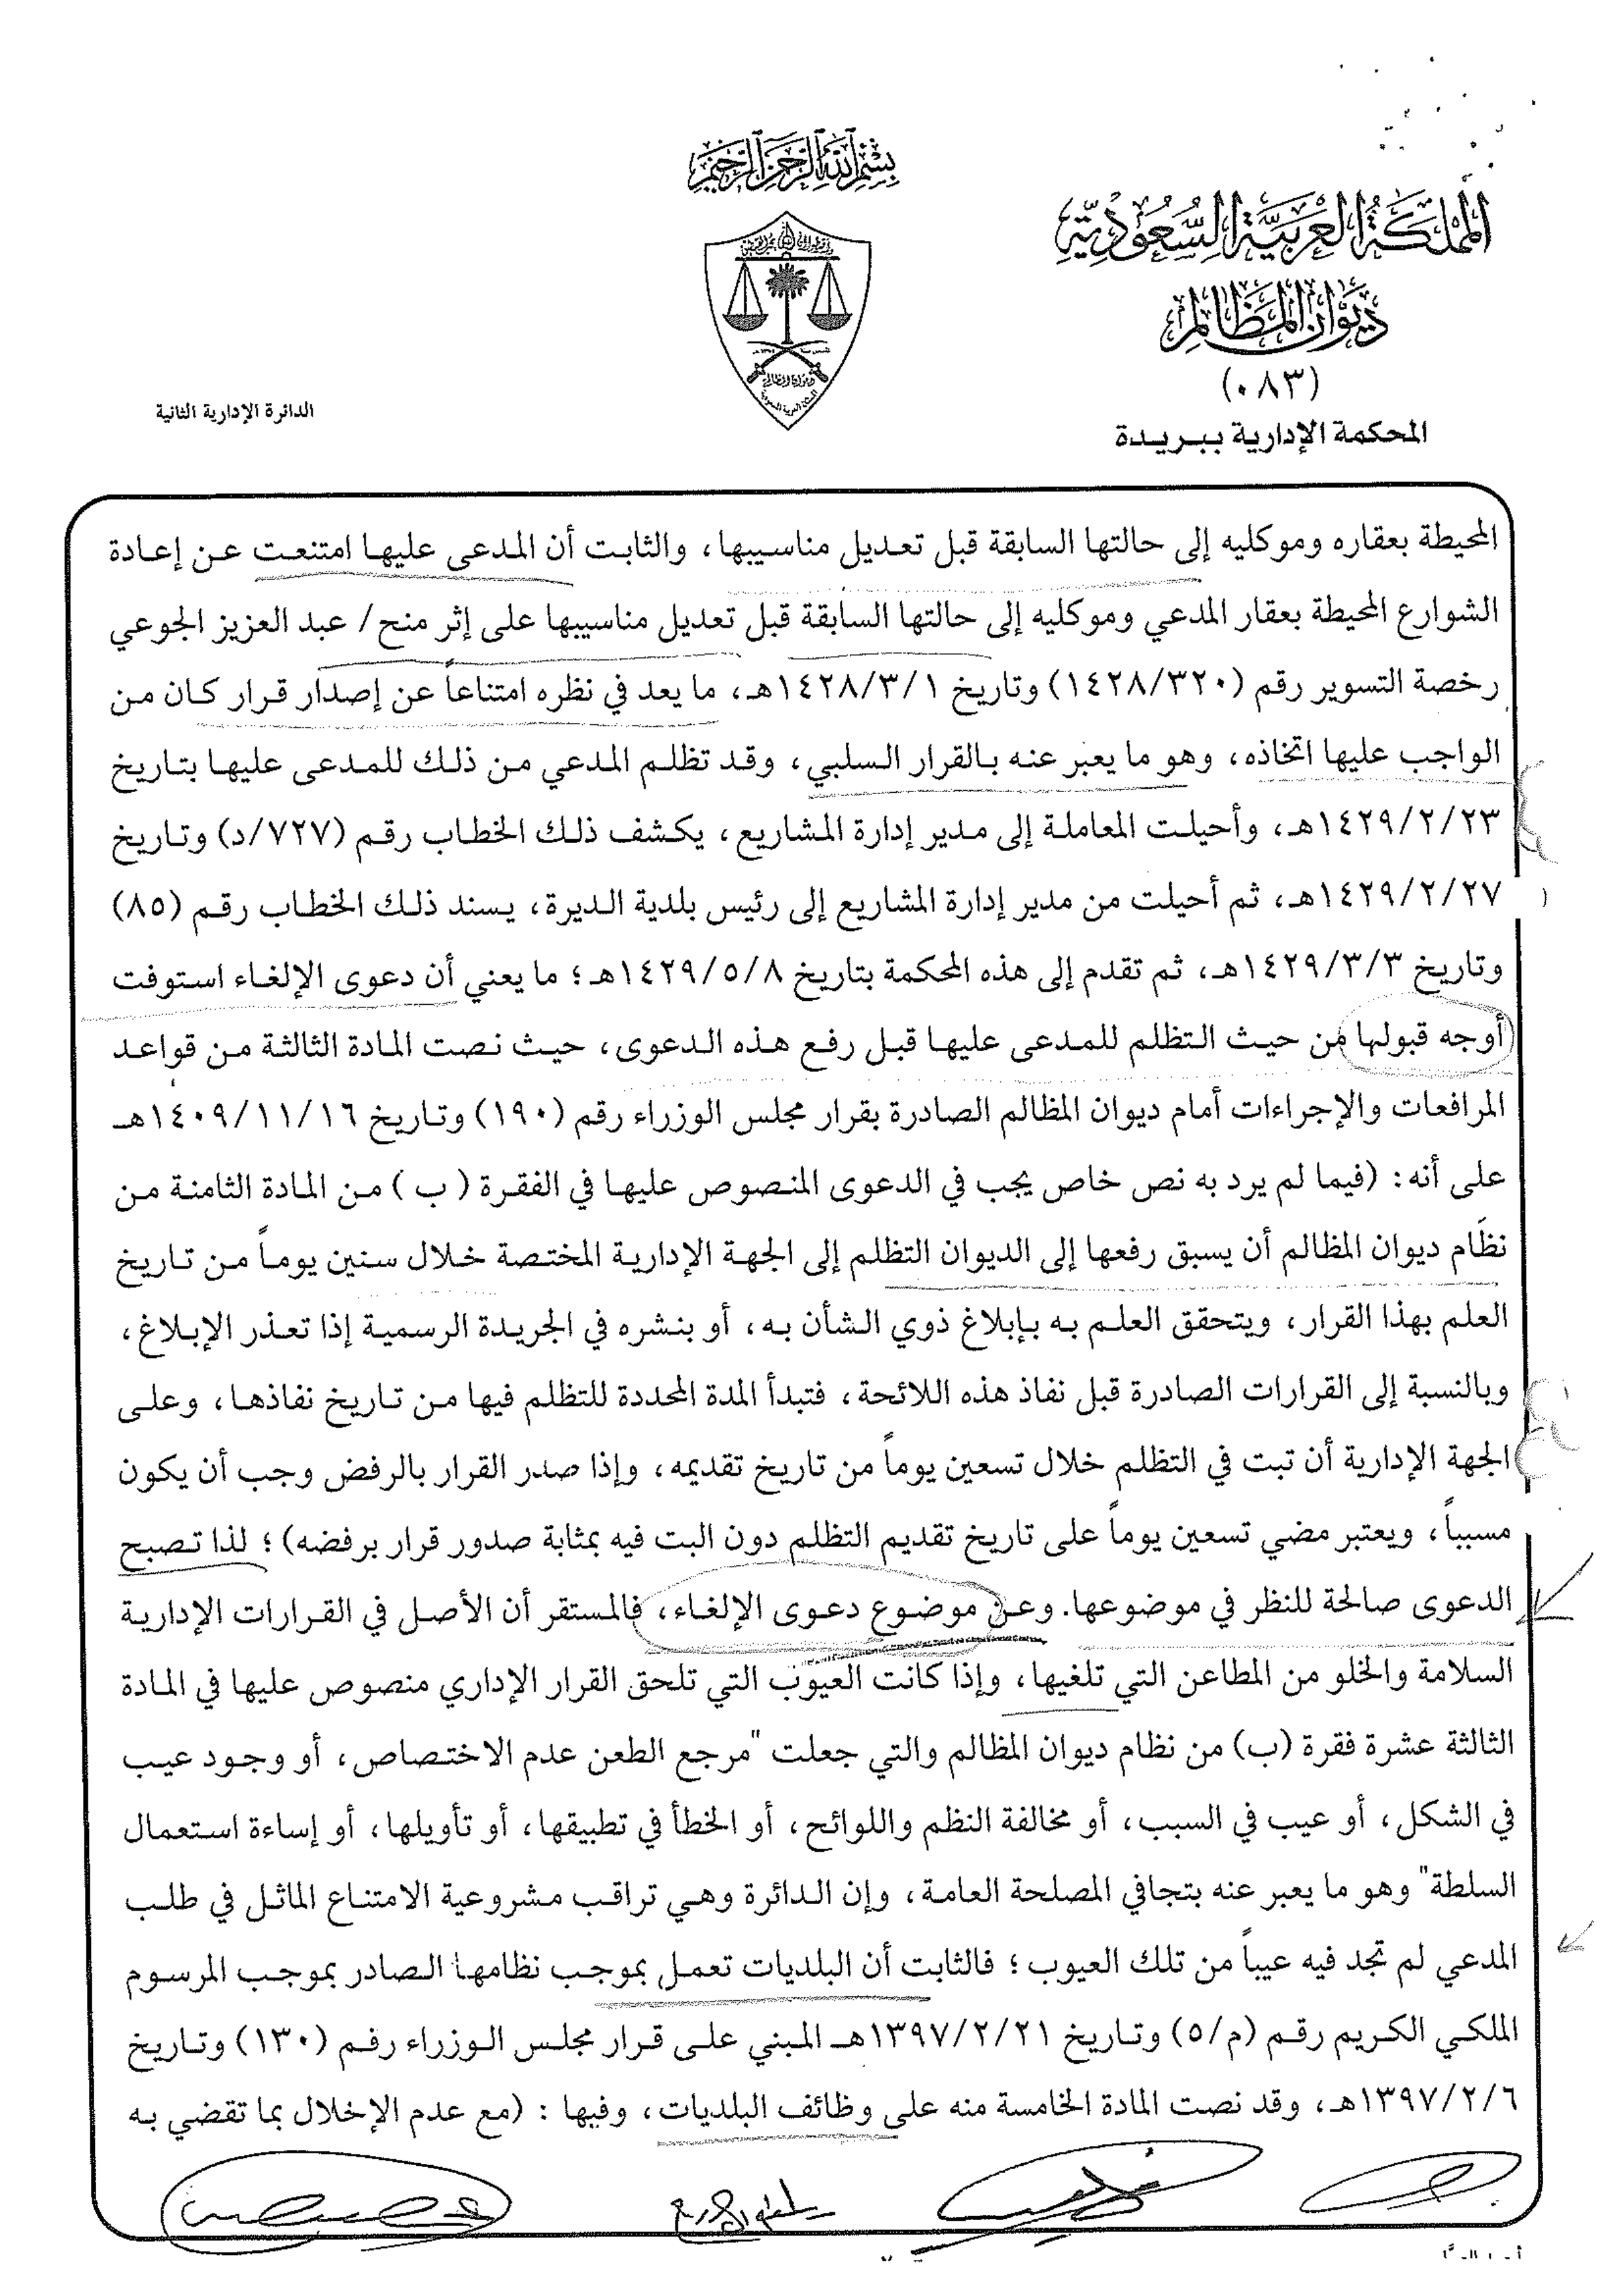 بسم الله الرحمن الرحيم
المملكة العربية السعودية
ديوان المظالم
(٠٨٣)
المحكمة الإدارية ببريدة
الدائرة الإدارية الثانية
المحيطة بعقاره وموكليه إلى حالتها السابقة قبل تعديل مناسيبها، والثابت أن المدعى عليها امتنعت عن إعادة
الشوارع المحيطة بعقار المدعي وموكليه إلى حالتها السابقة قبل تعديل مناسيبها على إثر منح/ عبد العزيز الجوعي
رخصة التسوير رقم (١٤٢٨/٣٢٠) وتاريخ ١٤٢٨/٣/١هـ، ما يعد في نظره امتناعاً عن إصدار قرار كان من
الواجب عليها اتخاذه، وهو ما يعبر عنه بالقرار السلبي، وقد تظلم المدعي من ذلك للمدعى عليها بتاريخ
١٤٢٩/٢/٢٣هـ، وأحيلت المعاملة إلى مدير إدارة المشاريع، يكشف ذلك الخطاب رقم (٧٢٧/د) وتاريخ
١٤٢٩/٢/٢٧هـ، ثم أحيلت من مدير إدارة المشاريع إلى رئيس بلدية الديرة، يسند ذلك الخطاب رقم (٨٥)
وتاريخ ١٤٢٩/٣/٣هـ، ثم تقدم إلى هذه المحكمة بتاريخ ١٤٢٩/٥/٨هـ؛ ما يعني أن دعوى الإلغاء استوفت
أوجه قبولها من حيث التظلم للمدعى عليها قبل رفع هذه الدعوى، حيث نصت المادة الثالثة من قواعد
المرافعات والإجراءات أمام ديوان المظالم الصادرة بقرار مجلس الوزراء رقم (١٩٠) وتاريخ ١٤٠٩/١١/١٦هـ
على أنه: (فيما لم يرد به نص خاص يجب في الدعوى المنصوص عليها في الفقرة (ب) من المادة الثامنة من
نظام ديوان المظالم أن يسبق رفعها إلى الديوان التظلم إلى الجهة الإدارية المختصة خلال ستين يوماً من تاريخ
العلم بهذا القرار، ويتحقق العلم به بإبلاغ ذوي الشأن به، أو بنشره في الجريدة الرسمية إذا تعذر الإبلاغ،
وبالنسبة إلى القرارات الصادرة قبل نفاذ هذه اللائحة، فتبدأ المدة المحددة للتظلم فيها من تاريخ نفاذها، وعلى
الجهة الإدارية أن تبت في التظلم خلال تسعين يوماً من تاريخ تقديمه، وإذا صدر القرار بالرفض وجب أن يكون
مسبباً، ويعتبر مضي تسعين يوماً على تاريخ تقديم التظلم دون البت فيه بمثابة صدور قرار برفضه)؛ لذا تصبح
الدعوى صالحة للنظر في موضوعها. وعن موضوع دعوى الإلغاء، فالمستقر أن الأصل في القرارات الإدارية
السلامة والخلو من المطاعن التي تلغيها، وإذا كانت العيوب التي تلحق القرار الإداري منصوص عليها في المادة
الثالثة عشرة فقرة (ب) من نظام ديوان المظالم والتي جعلت "مرجع الطعن عدم الاختصاص، أو وجود عيب
في الشكل، أو عيب في السبب، أو مخالفة النظم واللوائح، أو الخطأ في تطبيقها، أو تأويلها، أو إساءة استعمال
السلطة" وهو ما يعبر عنه بتجافي المصلحة العامة، وإن الدائرة وهي تراقب مشروعية الامتناع الماثل في طلب
المدعي لم تجد فيه عيباً من تلك العيوب؛ فالثابت أن البلديات تعمل بموجب نظامها الصادر بموجب المرسوم
الملكي الكريم رقم (م/٥) وتاريخ ١٣٩٧/٢/٢١هـ المبني على قرار مجلس الوزراء رقم (١٣٠) وتاريخ
١٣٩٧/٢/٦هـ، وقد نصت المادة الخامسة منه على وظائف البلديات، وفيها : (مع عدم الإخلال بما تقضي به